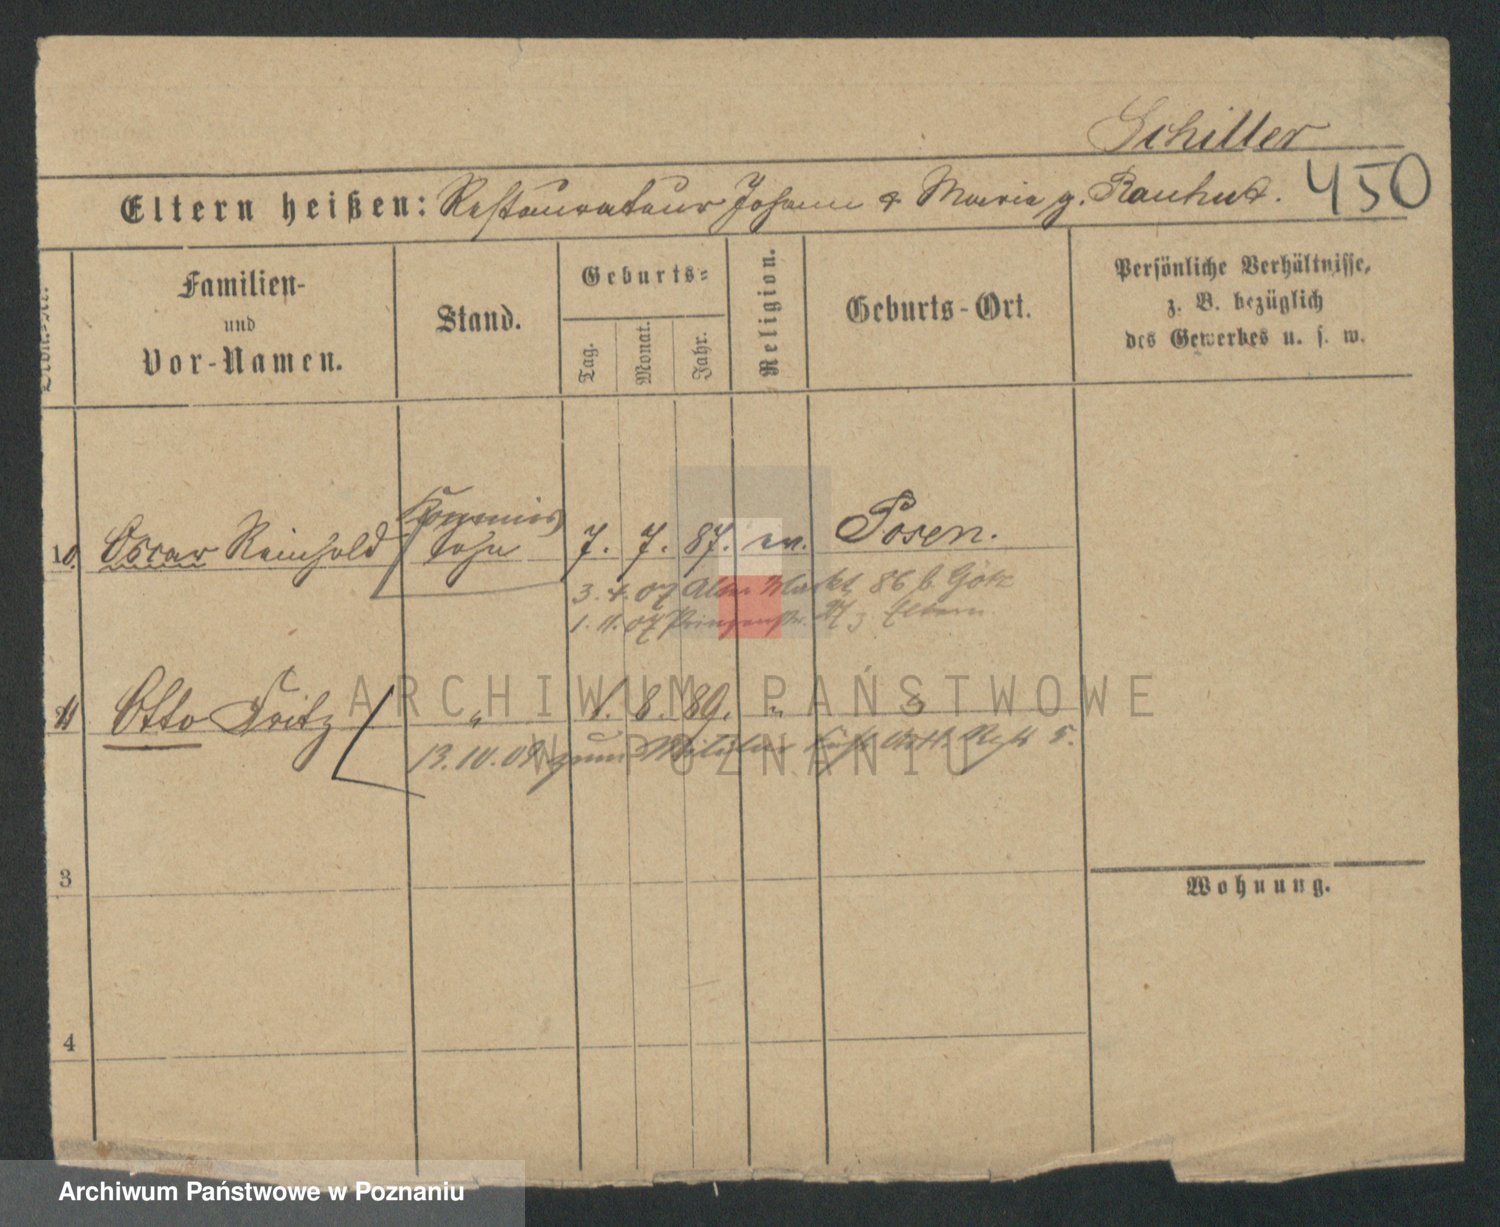 Schiller
Eltern heißen: Restaurateur Johann & Maria g. Rauhut. 450
Familien-
und
Vor-Namen.
Stand.
Geburts-
Tag.
Monat.
Jahr.
Religion.
Geburts-Ort.
Persönliche Verhältnisse,
z. B. bezüglich
des Gewerbes u. s. w.
Kommis
10. Oscar Reinhold Sohn 7. 7. 87. ev. Posen.
3. 4. 07 Alter Markt 86 b. Götz
1. 11. 07 Prinzenstr. z. Eltern
11 Otto Fritz " 1. 8. 89. "
13. 10. 09 zum Militär 5.
3
Wohnung.
4
ARCHIWUM PAŃSTWOWE
W POZNANIU
Archiwum Państwowe w Poznaniu